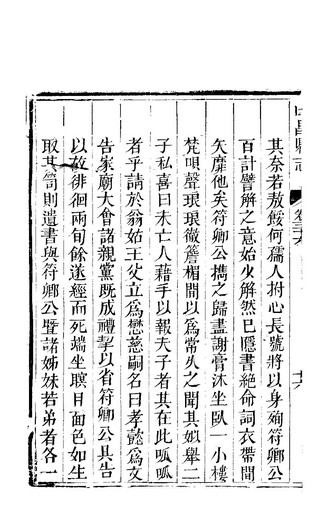 昌縣志
其奈若敖餒何孺人拊心長號將以身殉符卿公
百計譬解之意始少解然已隱書絶命詞衣帶間
矢靡他矣符卿公攜之歸盡謝膏沐坐臥一小樓
梵唄聲琅琅徹簷楣間以爲常久之聞其姒舉二
子私喜曰未亡人藉手以報夫子者其在此呱呱
者乎請於翁姑王父立爲懋慈嗣名曰孝懿爲文
告家廟大會諸親黨旣成禮挈以省符卿公具告
以故徘徊兩旬餘遂經而死端坐瞑目面色如生
取其笥則遺書與符卿公曁諸姊妹若弟者各一